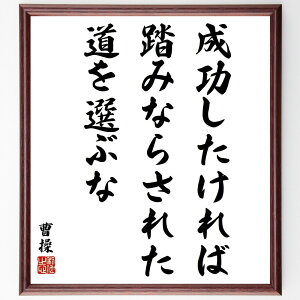 成功したければ
踏みならされた
道を選ぶな
曹操